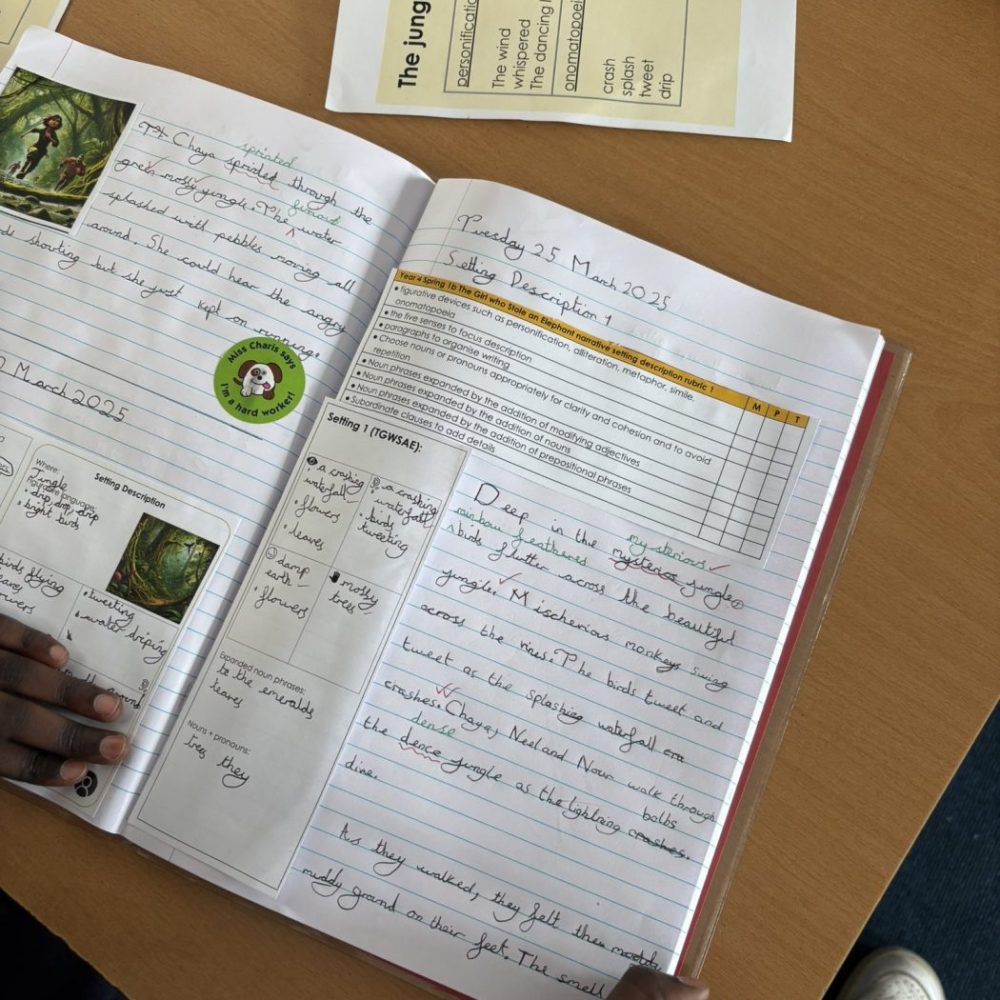 The jung
personificatio
The wind
whispered
The dancing l
onomatopoei
crash
splash
tweet
drip
sprinted
Chaya sprided through the
green mossy jungle. The water
furious
splashed with pebbles moving all
around. She could hear the angry
shouting but she just kept on running.
Miss Charis says
I'm a hard worker!
March 2025
Setting Description
Where:
Jungle
figurative language:
• drip, drop, drip
• bright birds
birds flying
• tweeting
• water driping
Tuesday 25 March 2025
Setting Description 1
Year 4 Spring 1b The Girl who Stole an Elephant narrative setting description rubric 1
M P T
• figurative devices such as personification, alliteration, metaphor, simile,
onomatopoeia
• the five senses to focus description
• paragraphs to organise writing
• Choose nouns or pronouns appropriately for clarity and cohesion and to avoid
repetition
• Noun phrases expanded by the addition of modifying adjectives
• Noun phrases expanded by the addition of nouns
• Noun phrases expanded by the addition of prepositional phrases
• Subordinate clauses to add details
Setting 1 (TGWSAE):
• a crashing
waterfall
• flowers
• leaves
• a crashing
waterfall
• birds
tweeting
• damp
earth
• flowers
• mossy
trees
Expanded noun phrases:
to the emeralds
leaves
Nouns + pronouns:
trees they
Deep in the mysterios jungle,
mysterious
rainbow feathered
birds flutter across the beautiful
jungle. Mischerious monkeys swing
across the vines. The birds tweet and
tweet as the splashing waterfall
crashes. Chaya, Neel and Nour walk through
dense
the dence jungle as the lightning crashes.
bolbs
dine.
As they walked, they felt the muddy
muddy ground on their feet. The smell